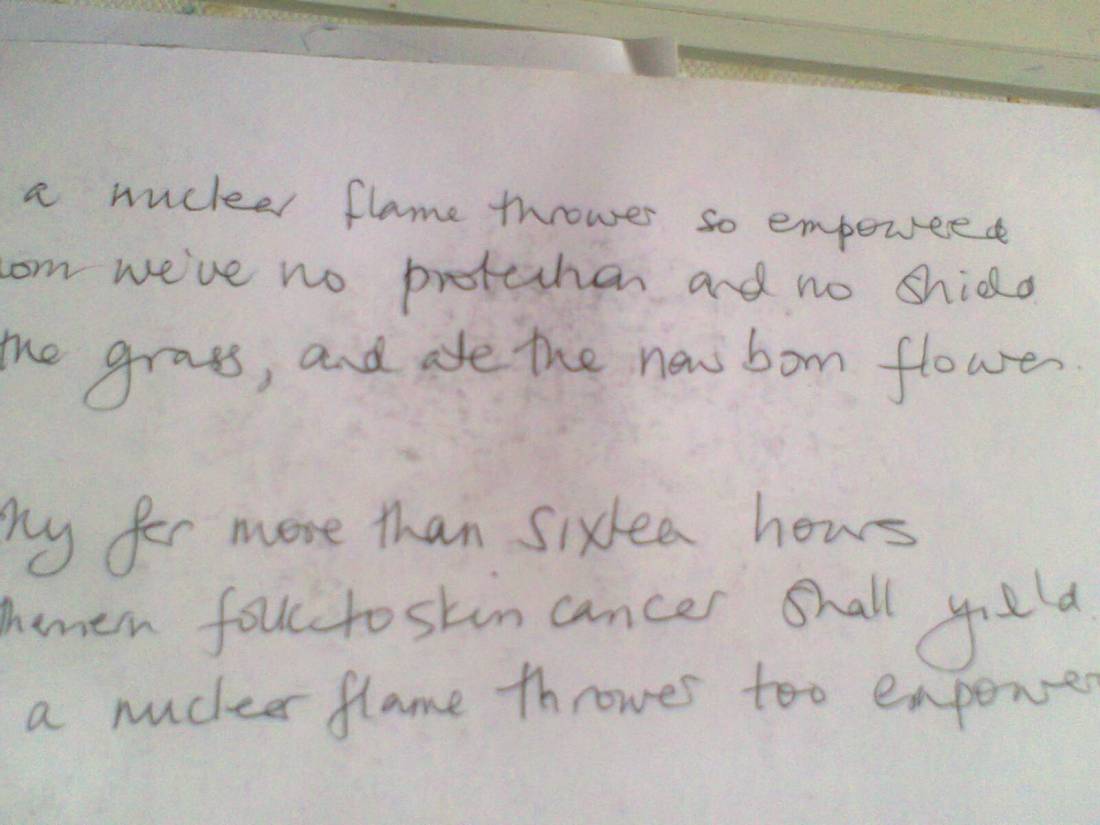 a nuclear flame thrower so empowered
we've no protection and no shield
the grass, and ate the new born flower.
for more than sixteen hours
folk to skin cancer shall yield.
a nuclear flame thrower too empower